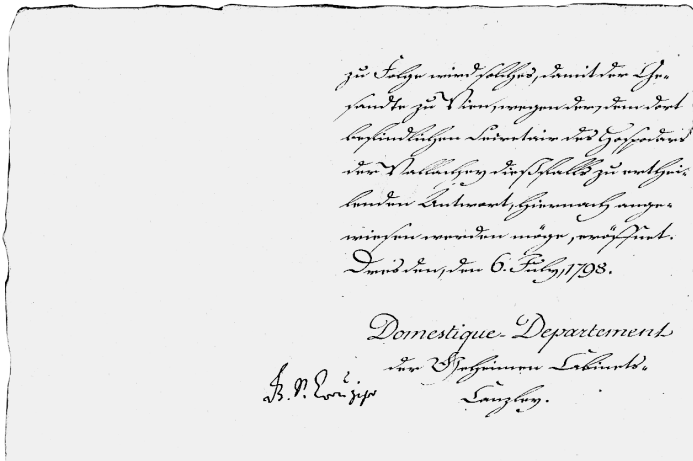 zu Folge wird solches, damit der Ge-
sandte zu Wien, wegen der, dem dort
befindlichen Secretair des Hospodars
der Wallachey dießfalls zu erthei-
lenden Antwort, hiernach ange-
wiesen werden möge, eröffnet.
Dresden, den 6. July, 1798.
Domestique-Departement
der Geheimen Cabinets-
Canzley.